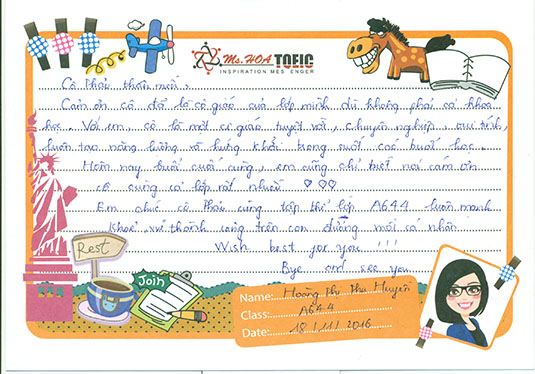 Ms. HOA TOEIC
INSPIRATION MESSENGER
Cô Thảo thân mến,
Cảm ơn cô đã là cô giáo của lớp mình dù không phải cả khóa
học. Với em, cô là một cô giáo tuyệt vời, chuyên nghiệp, vui tính,
luôn tạo năng lượng và hứng khởi trong suốt các buổi học.
Hôm nay buổi cuối cùng, em cũng chỉ biết nói cảm ơn
cô cùng cả lớp rất nhiều ♡ ♡♡
Em chúc cô Thảo cùng tập thể lớp A644 luôn mạnh
khỏe và thành công trên con đường mỗi cá nhân
Wish best for you !!!
Bye and see you
Rest
Join
Name: Hoàng Thị Thu Huyền
Class: A644
Date: 18/11/2016